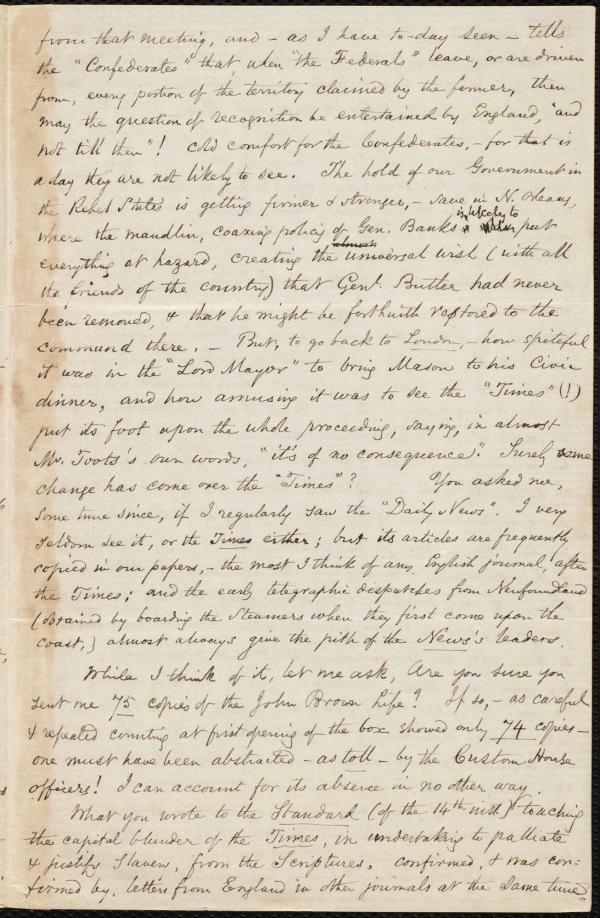 from that meeting, and - as I have to-day seen - tells
the "Confederates" that when "the Federals" leave, or are driven
from, every portion of the territory claimed by the former, then
may the question of recognition be entertained by England, "and
not till then"! Cold comfort for the Confederates, - for that is
a day they are not likely to see. The hold of our Government in
the Rebel States is getting firmer & stronger, - save in N. Orleans,
where the maudlin, coaxing policy of Gen. Banks is likely to put
everything at hazard, creating the almost universal wish (with all
the friends of the country) that Genl. Butler had never
been removed, & that he might be forthwith restored to the
command there. - But, to go back to London, - how spiteful
it was in the "Lord Mayor" to bring Mason to his Civic
dinner, and how amusing it was to see the "Times" (!)
put its foot upon the whole proceeding, saying, in almost
Mr. Toots's own words, "it's of no consequence". Surely some
change has come over the "Times"? You asked me,
some time since, if I regularly saw the "Daily News". I very
seldom see it, or the Times either; but its articles are frequently
copied in our papers, - the most I think of any English journal, after
the Times; and the early telegraphic despatches from Newfoundland
(obtained by boarding the Steamers when they first come upon the
coast,) almost always give the pith of the News's leaders.
While I think of it, let me ask, Are you sure you
sent me 75 copies of the John Brown Life? If so, - as careful
& repeated counting at first opening of the box showed only 74 copies -
one must have been abstracted - as toll - by the Custom House
officers! I can account for its absence in no other way.
What you wrote to the Standard (of the 14th inst.) touching
the capital blunder of the Times, in undertaking to palliate
& justify Slavery, from the Scriptures, confirmed, & was con-
firmed by, letters from England in other journals at the same time.